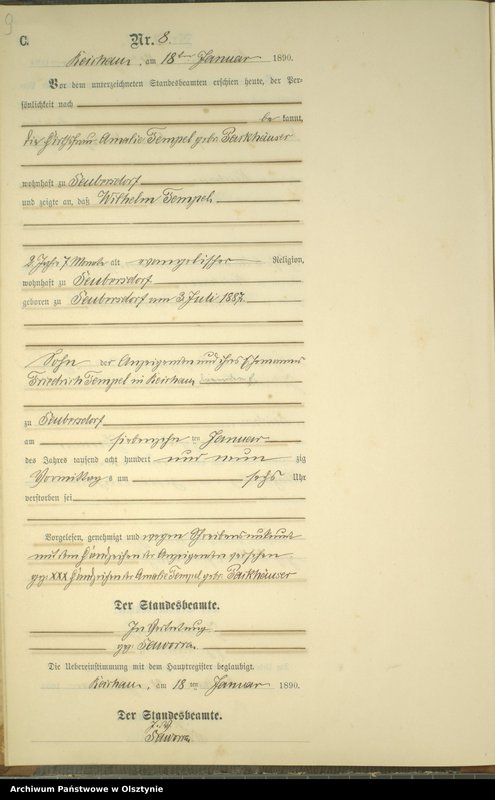 9
C.
Nr. 8.
Reichau, am 18ten Januar 1890.
Vor dem unterzeichneten Standesbeamten erschien heute, der Per-
sönlichkeit nach
be kannt,
die Amalie Tempel geb. Parkhäuser
wohnhaft zu Seubersdorf
und zeigte an, daß Wilhelm Tempel
2 Jahr 7 Monate alt evangelischer Religion,
wohnhaft zu Seubersdorf
geboren zu Seubersdorf am 3. Juli 1887.
Sohn der Anzeigenden und ihres Ehemannes
Friedrich Tempel in Reichau
zu Seubersdorf
am siebenzehn ten Januar
des Jahres tausend acht hundert und neun zig
Vormittag s um sechs Uhr
verstorben sei
Vorgelesen, genehmigt und wegen Schreibensunkunde
mit dem Handzeichen der Anzeigenden versehen
gez. XXX Handzeichen der Amalie Tempel geb. Parkhäuser
Der Standesbeamte.
In Vertretung
gez. Saworra.
Die Uebereinstimmung mit dem Hauptregister beglaubigt.
Reichau, am 18 ten Januar 1890.
Der Standesbeamte.
Saworra
Archiwum Państwowe w Olsztynie